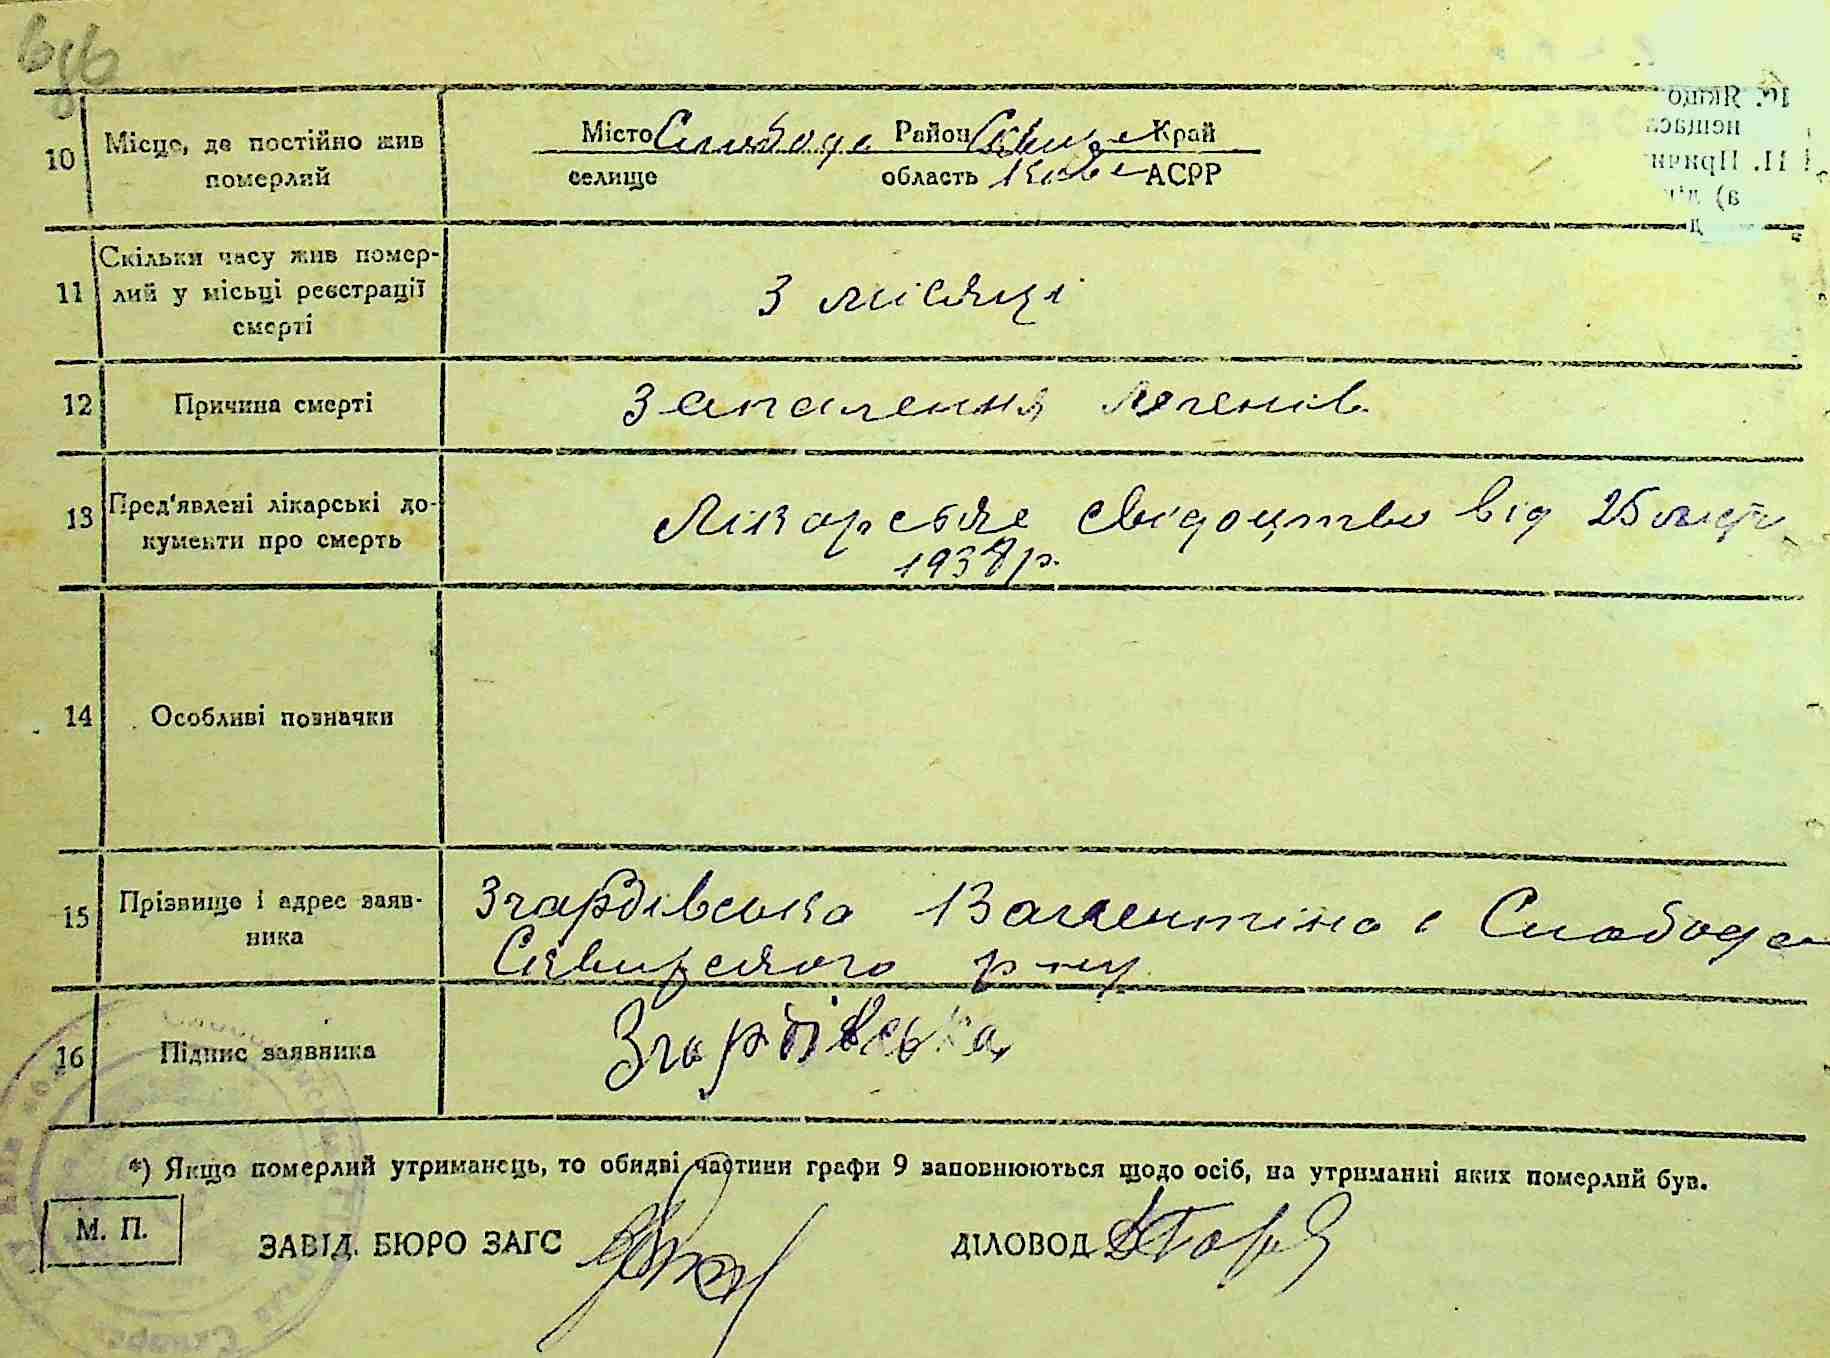 10 Місце, де постійно жив померлий
Місто Слобода Район Сквир Край
селище область Київ АСРР
11 Скільки часу жив помер-
лий у місьці реєстрації
смерті
3 місяці
12 Причина смерті
Запалення легенів
13 Пред'явлені лікарські до-
кументи про смерть
Лікарське свідоцтво від 25 лист
1938 р.
14 Особливі позначки
15 Прізвище і адрес заяв-
ника
Згардівська Валентина с Слобода
Сквирського р-ну
16 Підпис заявника
Згардівська
*) Якщо померлий утриманець, то обидві частини графи 9 заповнюються щодо осіб, на утриманні яких померлий був.
М. П.
ЗАВІД. БЮРО ЗАГС ДІЛОВОД